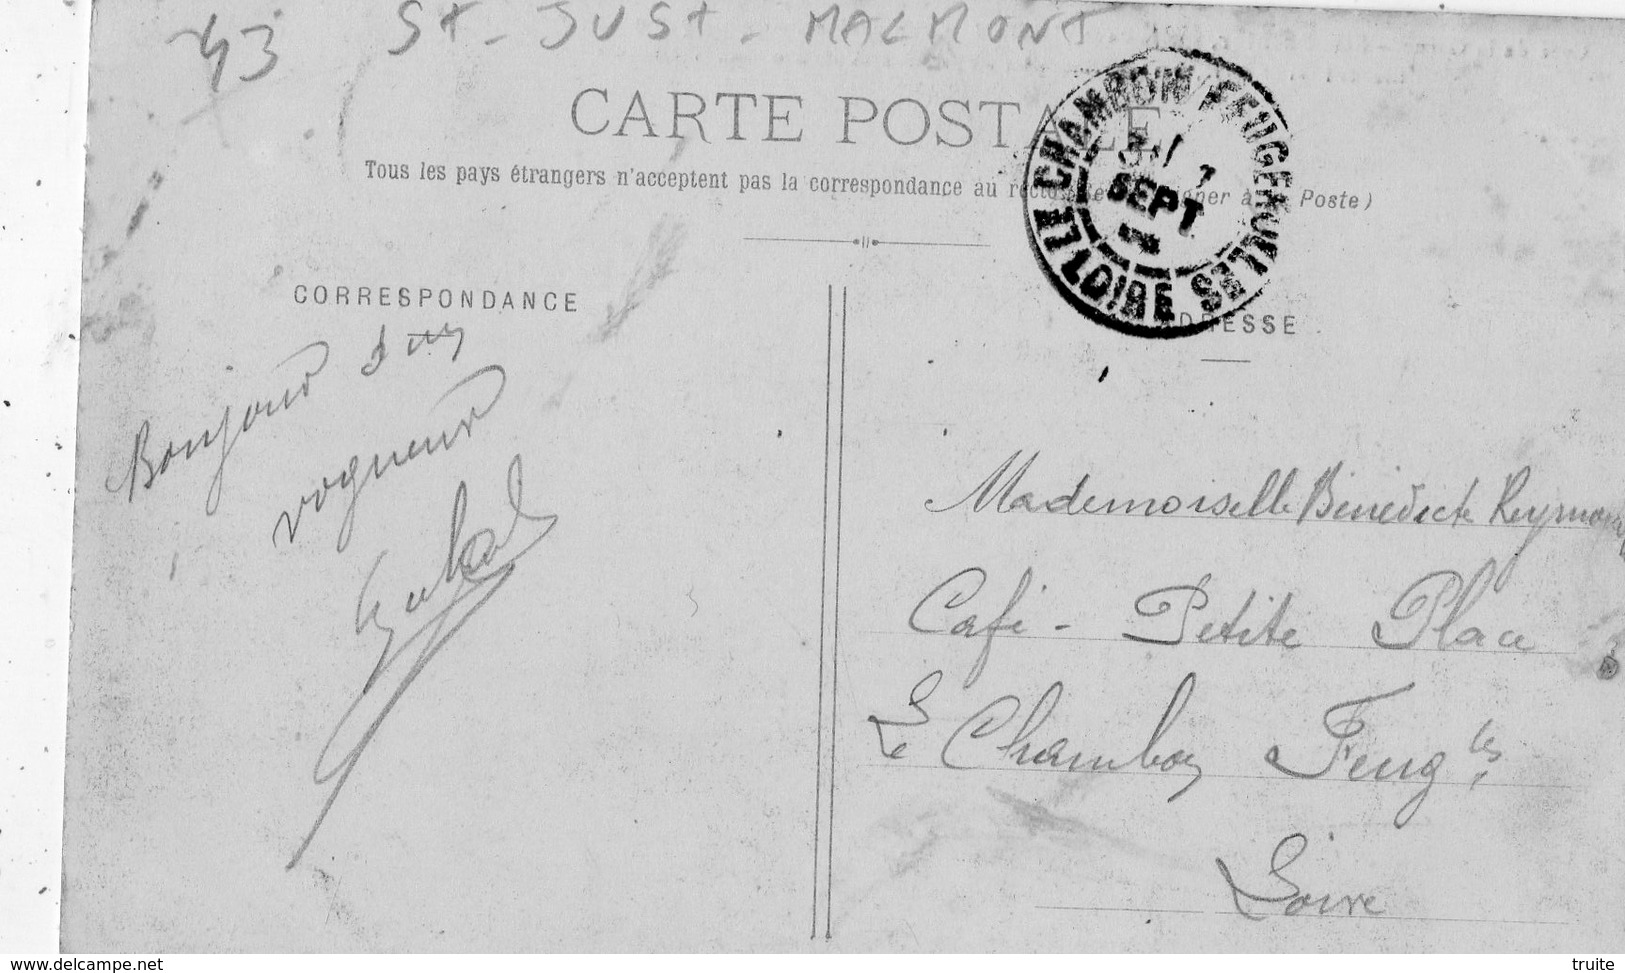 43 St-JUST-MALMONT
CARTE POSTALE
Tous les pays étrangers n'acceptent pas la correspondance au recto à Poste)
LE CHAMBON FEUGEROLLES
SEPT
LOIRE
CORRESPONDANCE
ADRESSE
Bonjour d'un
vogueur
Mademoiselle Bénédicte Reymond
Café - Petite Place
Le Chambon Feug les
Loire
www.delcampe.net
truite